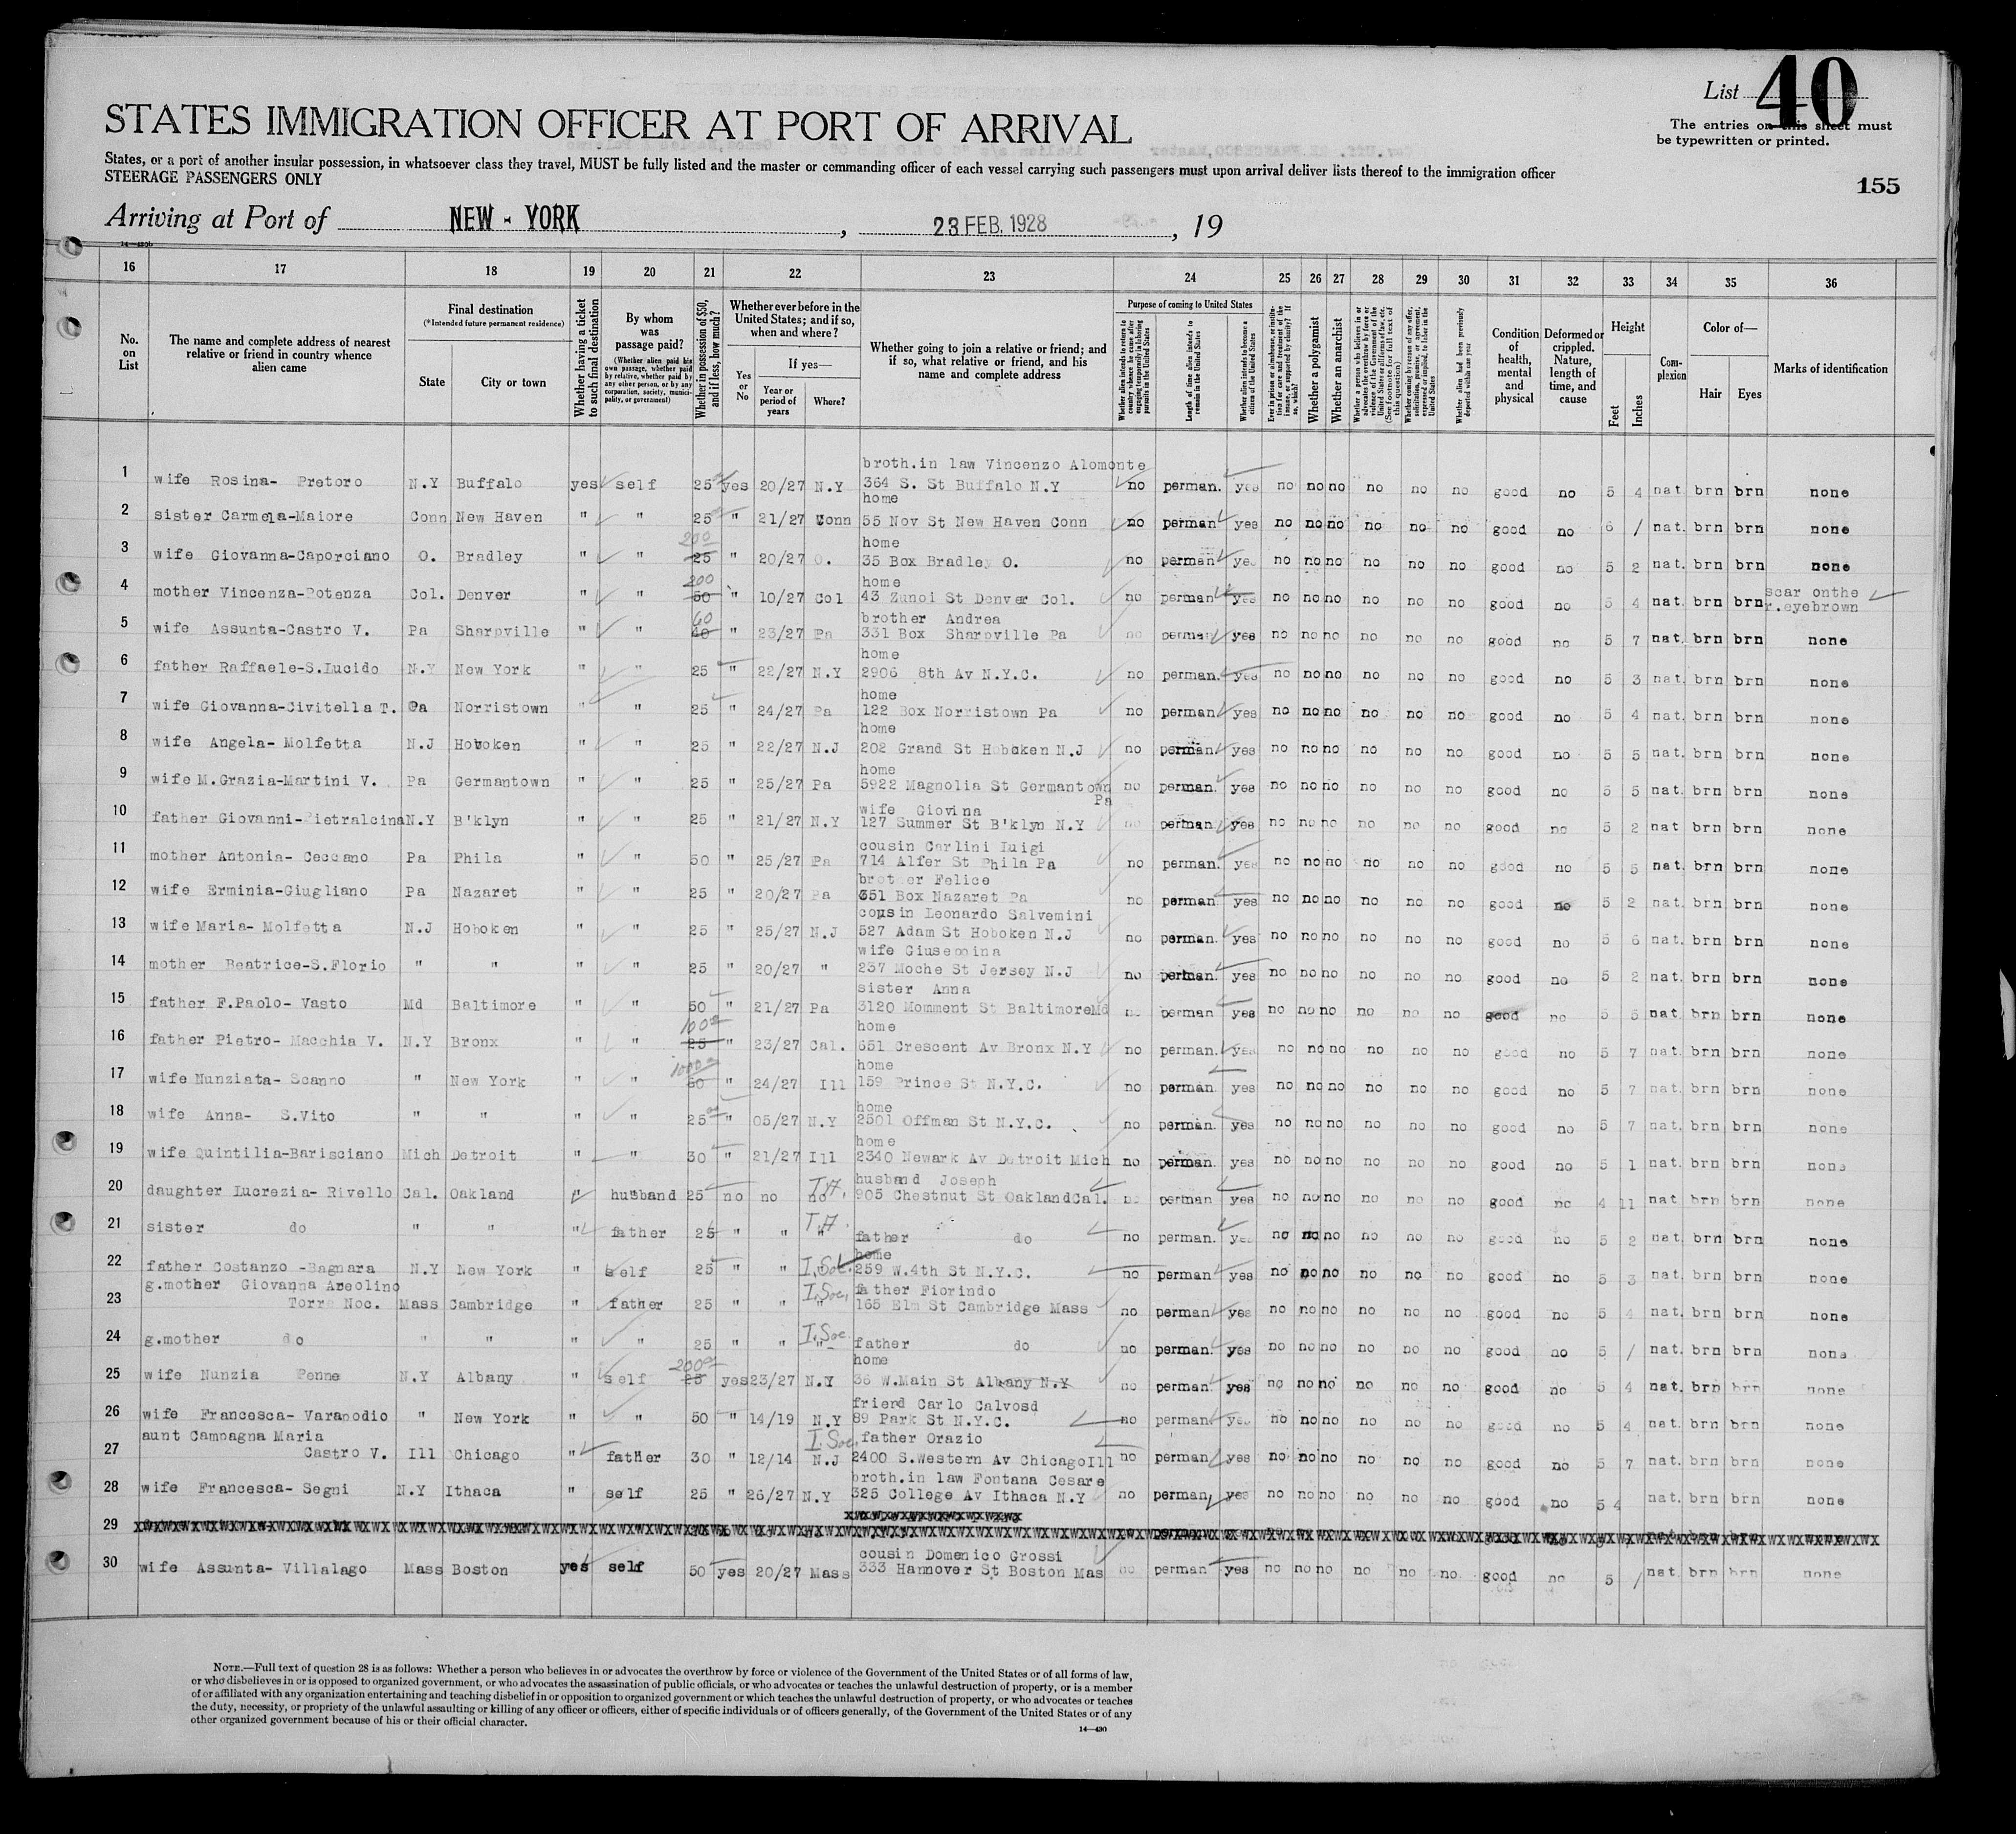 List 40
STATES IMMIGRATION OFFICER AT PORT OF ARRIVAL
The entries on this sheet must
be typewritten or printed.
States, or a port of another insular possession, in whatsoever class they travel, MUST be fully listed and the master or commanding officer of each vessel carrying such passengers must upon arrival deliver lists thereof to the immigration officer
STEERAGE PASSENGERS ONLY
155
Arriving at Port of NEW - YORK , 23 FEB. 1928 , 19
16 17 18 19 20 21 22 23 24 25 26 27 28 29 30 31 32 33 34 35 36
No. on List
The name and complete address of nearest relative or friend in country whence alien came
Final destination
(*Intended future permanent residence)
State
City or town
Whether having a ticket to such final destination
By whom was passage paid?
(Whether alien paid his own passage, whether paid by relative, whether paid by any other person, or by any corporation, society, municipality, or government)
Whether in possession of $50, and if less, how much?
Whether ever before in the United States; and if so, when and where?
Yes or No
If yes—
Year or period of years
Where?
Whether going to join a relative or friend; and if so, what relative or friend, and his name and complete address
Purpose of coming to United States
Whether alien intends to return to country whence he came after engaging temporarily in laboring pursuits in the United States
Length of time alien intends to remain in the United States
Whether alien intends to become a citizen of the United States
Whether a polygamist
Whether an anarchist
Whether alien had been previously deported within one year
Condition of health, mental and physical
Deformed or crippled. Nature, length of time, and cause
Height
Feet
Inches
Complexion
Color of—
Hair
Eyes
Marks of identification
broth.in law Vincenzo Alomonte
1 wife Rosina- Pretoro N.Y Buffalo yes self 25 yes 20/27 N.Y 364 S. St Buffalo N.Y no perman. yes no no no no no no good no 5 4 nat brn brn none
home
2 sister Carmela-Maiore Conn New Haven " " 25 " 21/27 Conn 55 Nov St New Haven Conn no perman yes no no no no no no good no 6 / nat. brn brn none
200 home
3 wife Giovanna-Caporciano O. Bradley " " 25 " 20/27 O. 35 Box Bradley O. no perman yes no no no no no no good no 5 2 nat. brn brn none
200 home
4 mother Vincenza-Potenza Col. Denver " " 50 " 10/27 Col 43 Zunoi St Denver Col. no perman yes no no no no no no good no 5 4 nat. brn brn scar onthe r.eyebrown
60 brother Andrea
5 wife Assunta-Castro V. Pa Sharpville " " 40 " 23/27 Pa 331 Box Sharpville Pa no perman yes no no no no no no good no 5 7 nat. brn brn none
home
6 father Raffaele-S.Lucido N.Y New York " " 25 " 22/27 N.Y 2906 8th Av N.Y.C. no perman. yes no no no no no no good no 5 3 nat. brn brn none
home
7 wife Giovanna-Civitella T. Pa Norristown " " 25 " 24/27 Pa 122 Box Norristown Pa no perman yes no no no no no no good no 5 4 nat. brn brn none
home
8 wife Angela- Molfetta N.J Hoboken " " 25 " 22/27 N.J 202 Grand St Hoboken N.J no perman yes no no no no no no good no 5 5 nat. brn brn none
home
9 wife M.Grazia-Martini V. Pa Germantown " " 25 " 25/27 Pa 5922 Magnolia St Germantown Pa no perman. yes no no no no no no good no 5 5 nat. brn brn none
wife Giovina
10 father Giovanni-Pietralcina N.Y B'klyn " " 25 " 21/27 N.Y 127 Summer St B'klyn N.Y no perman yes no no no no no no good no 5 2 nat brn brn none
cousin Carlini Luigi
11 mother Antonia- Ceccano Pa Phila " " 50 " 25/27 Pa 714 Alfer St Phila Pa no perman. yes no no no no no no good no 5 5 nat brn brn none
brother Felice
12 wife Erminia-Giugliano Pa Nazaret " " 25 " 20/27 Pa 651 Box Nazaret Pa no perman yes no no no no no no good no 5 2 nat. brn brn none
cousin Leonardo Salvemini
13 wife Maria- Molfetta N.J Hoboken " " 25 " 25/27 N.J 527 Adam St Hoboken N.J no perman. yes no no no no no no good no 5 6 nat. brn brn none
wife Giuseppina
14 mother Beatrice-S.Florio " " " " 25 " 20/27 " 237 Moche St Jersey N.J no perman. yes no no no no no no good no 5 2 nat. brn brn none
sister Anna
15 father F.Paolo- Vasto Md Baltimore " " 50 " 21/27 Pa 3120 Momment St BaltimoreMd no perman yes no no no no no no good no 5 5 nat brn brn none
100 home
16 father Pietro- Macchia V. N.Y Bronx " " 25 " 23/27 Cal. 651 Crescent Av Bronx N.Y no perman. yes no no no no no no good no 5 7 nat. brn brn none
1000 home
17 wife Nunziata- Scanno " New York " " 50 " 24/27 Ill 159 Prince St N.Y.C. no perman. yes no no no no no no good no 5 7 nat. brn brn none
home
18 wife Anna- S.Vito " " " " 25 " 05/27 N.Y 2501 Offman St N.Y.C. no perman. yes no no no no no no good no 5 7 nat. brn brn none
home
19 wife Quintilia-Barisciano Mich Detroit " " 30 " 21/27 Ill 2340 Newark Av Detroit Mich no perman. yes no no no no no no good no 5 1 nat. brn brn none
husband Joseph
20 daughter Lucrezia- Rivello Cal. Oakland " husband 25 no no no 905 Chestnut St OaklandCal. no perman yes no no no no no no good no 4 11 nat brn brn none
21 sister do " " " father 25 " " " father do no perman. yes no no no no no no good no 5 2 nat. brn brn none
home
22 father Costanzo -Bagnara N.Y New York " self 25 " " I.Soc. 259 W.4th St N.Y.C. no perman yes no no no no no no good no 5 3 nat. brn brn none
g.mother Giovanna Areolino I.Soc. father Fiorindo
23 Torre Noc. Mass Cambridge " father 25 " " " 165 Elm St Cambridge Mass no perman yes no no no no no no good no 5 4 nat. brn brn none
I.Soc
24 g.mother do " " " " 25 " " " father do no perman. yes no no no no no no good no 5 / nat. brn brn none
200 home
25 wife Nunzia Penne N.Y Albany " self 25 yes 23/27 N.Y 36 W.Main St Albany N.Y no perman. yes no no no no no no good no 5 4 nat. brn brn none
friend Carlo Calvosd
26 wife Francesca- Varapodio " New York " " 50 " 14/19 N.Y 89 Park St N.Y.C. no perman yes no no no no no no good no 5 4 nat. brn brn none
aunt Campagna Maria I.Soc. father Orazio
27 Castro V. Ill Chicago " father 30 " 12/14 N.J 2400 S.Western Av ChicagoIll no perman yes no no no no no no good no 5 7 nat. brn brn none
broth.in law Fontana Cesare
28 wife Francesca- Segni N.Y Ithaca " self 25 " 26/27 N.Y 325 College Av Ithaca N.Y no perman yes no no no no no no good no 5 4 nat. brn brn none
29
cousin Domenico Grossi
30 wife Assunta- Villalago Mass Boston yes self 50 yes 20/27 Mass 333 Hannover St Boston Mas no perman yes no no no no no no good no 5 / nat. brn brn none
NOTE.—Full text of question 28 is as follows: Whether a person who believes in or advocates the overthrow by force or violence of the Government of the United States or of all forms of law,
or who disbelieves in or is opposed to organized government, or who advocates the assassination of public officials, or who advocates or teaches the unlawful destruction of property, or is a member
of or affiliated with any organization entertaining and teaching disbelief in or opposition to organized government or which teaches the unlawful destruction of property, or who advocates or teaches
the duty, necessity, or propriety of the unlawful assaulting or killing of any officer or officers, either of specific individuals or of officers generally, of the Government of the United States or of any
other organized government because of his or their official character.
14—430